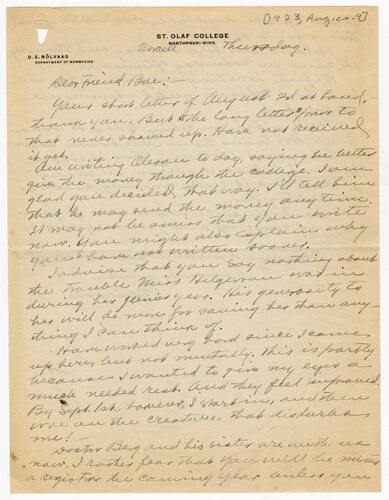 [1923, Aug. 10-9]
ST. OLAF COLLEGE
NORTHFIELD, MINN.
O. E. RÖLVAAG
DEPARTMENT OF NORWEGIAN
Thursday.
Dear Friend, Boe:-
Your short letter of August 3d at hand,
thank you. But the long letter prior to
that never showed up. Have not received
it yet.
Am writing Oleson to day, saying he better
give the money through the college. I am
glad you decided that way. I'll tell him
that he may send the money any time.
It may not be amiss that you write
now. You might also explain why
you have not written sooner.
I advise that you say nothing about
the trouble Miss Helgeson was in
during her junior year. His generosity to
her will do more for saving her than any-
thing I can think of.
Have worked very hard since I came
up here, but not mentally. This is partly
because I wanted to give my eyes a
much needed rest. And they feel improved.
By Sept. 1st, however, I start in, and then
woe on the creature that disturbs
me!
Doctor Berg and his sister are with us
now. I rather fear that you will be minus
a registrar the coming year unless you